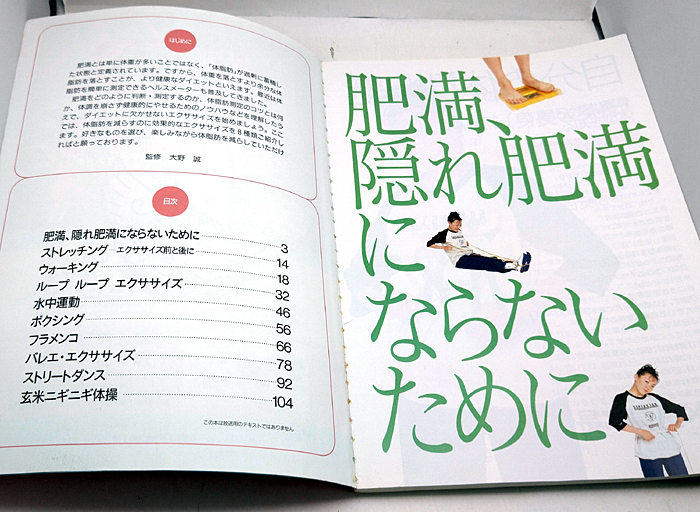 はじめに
肥満とは単に体重が多いことではなく、「体脂肪」が過剰に蓄積し
た状態と定義されています。ですから、体重を落とすより余分な体
脂肪を落とすことが、より健康的なダイエットといえます。最近は体
脂肪を簡単に測定できるヘルスメーターも普及してきました。
肥満をどのように判断・測定するのか、体脂肪測定のコツとは何
か、体調を崩さず健康的にやせるためのノウハウなどを理解したう
えで、ダイエットに欠かせないエクササイズを始めましょう。ここ
では、体脂肪を減らすのに効果的なエクササイズを8種類ご紹介し
ます。好きなものを選び、楽しみながら体脂肪を減らしていただけ
ればと願っております。
監修 大野 誠
目次
肥満、隠れ肥満にならないために 3
ストレッチング エクササイズ前と後に 14
ウォーキング 18
ループ ループ エクササイズ 32
水中運動 46
ボクシング 56
フラメンコ 66
バレエ・エクササイズ 78
ストリートダンス 92
玄米ニギニギ体操 104
この本は放送用のテキストではありません
肥満、
隠れ肥満
に
ならない
ために